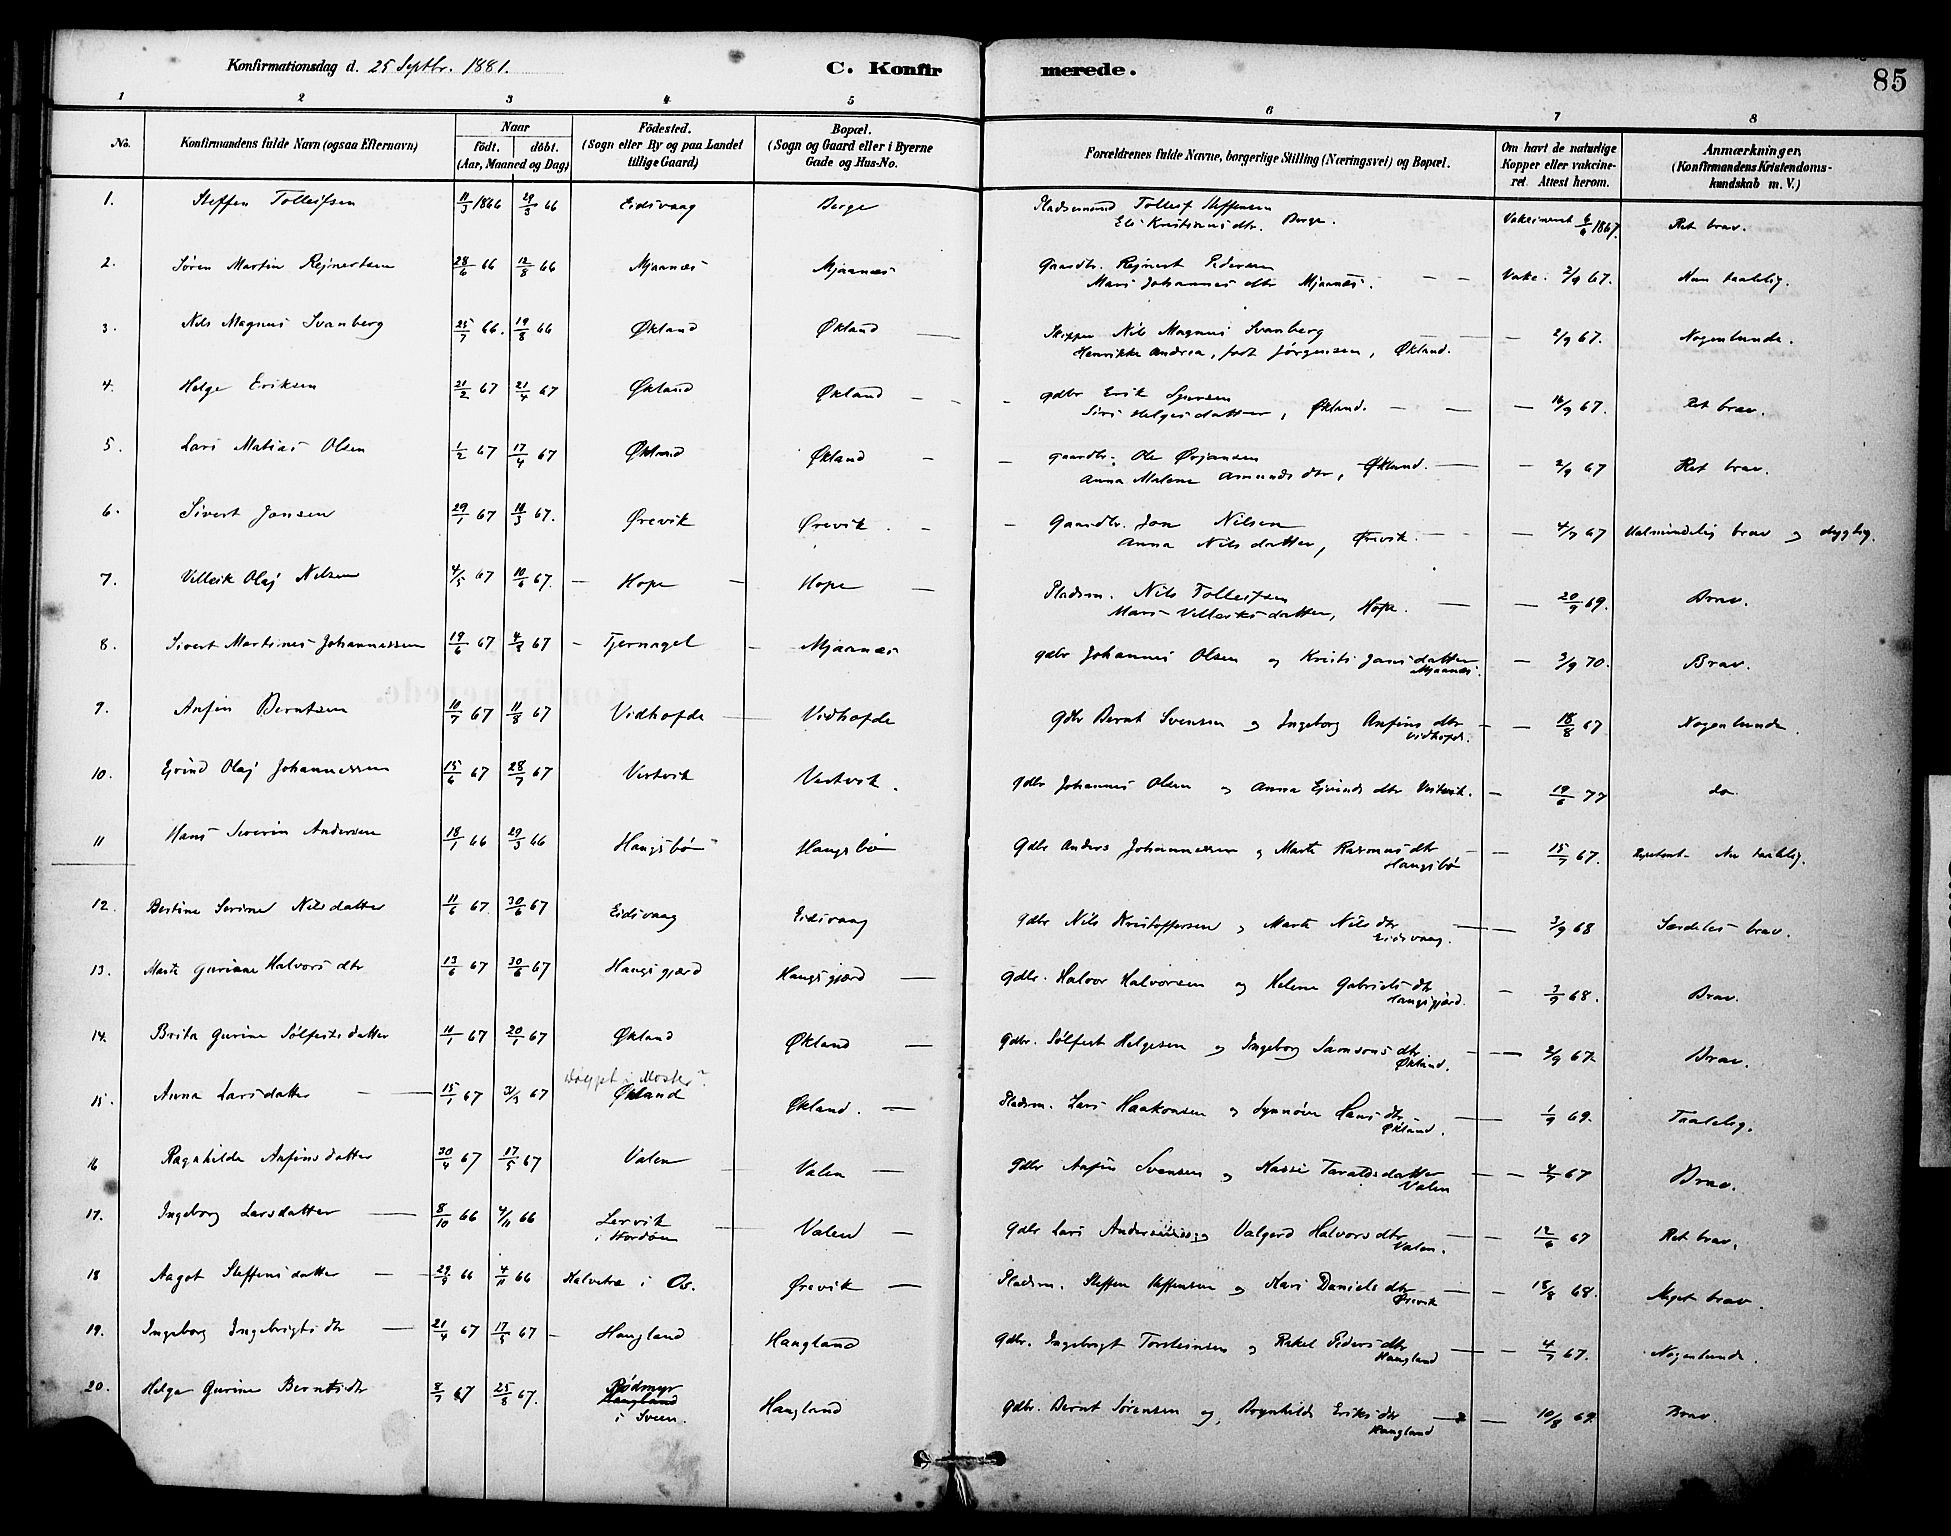 Konfirmationsdag d. 25 Septbr. 1881.
C. Konfirmerede.
85
1 2 3 4 5 6 7 8
No.
Konfirmandens fulde Navn (ogsaa Efternavn)
Naar
født. døbt.
(Aar, Maaned og Dag)
Födested.
(Sogn eller By og paa Landet
tillige Gaard)
Bopæl.
(Sogn og Gaard eller i Byerne
Gade og Hus-No.
Forældrenes fulde Navne, borgerlige Stilling (Næringsvei) og Bopæl.
Om havt de naturlige
Kopper eller vakcine-
ret. Attest herom.
Anmærkninger,
(Konfirmandens Kristendoms-
kundskab m. V.)
1. Steffen Tolleifsen 11/3 1866 29/3 66 Eidsvaag Berge Pladsemand Tolleif Steffensen
Eli Kristiansdtr. Berge. Vakcineret 6/6 1867. Ret brav.
2. Søren Martin Rejnertsen 28/6 66 12/8 66 Mjaanæs Mjaanæs Gaardbr. Rejnert Pedersen
Mari Johannesdtr Mjaanæs. Vakc. 2/9 67. Nun taalelig.
3. Nils Magnus Svanberg 25/7 66. 19/8 66 Økland Økland Skipper Nils Magnus Svanberg
Henrikke Andrea, født Jørgensen, Økland. 2/9 67. Nogenlunde.
4. Helge Eriksen 21/2 67 21/4 67 Økland Økland gdbr Erik
Siri Helgesdatter, Økland. 16/9 67. Ret brav.
5. Lars Matias Olsen 1/2 67 17/4 67 Økland Økland gaardbr. Ole Ørjansen
Anna Malene Amundsdtr, Økland. 2/9 67 Ret brav.
6. Sivert Jansen 29/1 67 10/3 67. Ørevik Ørevik Gaardbr. Jan Nilsen
Anna Nilsdatter, Ørevik. 4/7 67 Ualmindelig brav og dygtig.
7. Villeik Olaj Nilsen 4/5 67 10/6 67. Hope Hope Pladsm. Nils Tolleifsen
Mari Villeiksdatter, Hope. 20/9 69. Brav.
8. Sivert Martines Johannessen 19/6 67 67 Tjernagel Mjaanæs gdbr Johannes Olsen og Kristi Jansdatter
Mjaanæs. 3/9 70. Brav.
9. Anfin Berntsen 10/7 67 11/8 67 Vidhofde Vidhofde Gdbr Bernt Svensen og Ingeborg Anfinsdtr
Vidhofd. 18/8 67 Nogenlunde.
10. Ejvind Olaj Johannessen 15/6 67 28/7 67 Vestvik Vestvik. gdbr Johannes Olsen og Anna Ejvindsdtr Vestvik. 19/6 77 do
11 Hans Severin Andersen 18/1 66 29/3 66 Haugsbø Haugsbø Gdbr Anders Johannessen og Marta Rasmusdtr
Haugsbø 15/7 67. Nu taalelig.
12. Bertine Serine Nilsdatter 11/6 67. 30/6 67 Eidsvaag Eidsvaag gdbr Nils Kristoffersen og Marta Nilsdtr
Eidsvaag. 3/9 68 Særdeles brav.
13. Marta Gurine Halvorsdtr 13/6 67 30/6 67 Haugsgjærd Haugsgjærd gdbr. Halvor Halvorsen og Helene Gabrielsdtr
Haugsgjærd. 3/9 68. Brav.
14. Brita Gurine Sølfestsdatter 11/1 67 20/1 67 Økland Økland gdbr. Sølfest Helgesen og Ingeborg Samsonsdtr
Økland. 2/9 67. Brav.
15. Anna Larsdatter 15/1 67 31/3 67 døypt i Moster?
Økland Økland. Pladsm. Lars Haakonsen og Synnøve Hansdtr
Økland. 1/9 69. Taalelig.
16 Ragnhilda Anfinsdatter 30/4 67 17/5 67 Valen Valen gdbr Anfin Svensen og Taraldsdatter
Valen 4/7 67 Brav.
17. Ingeborg Larsdatter 8/10 66 4/11 66 Lervik
i Stordøen Valen gdbr Lars Andersen og Valgerd Halvorsdtr
Valen. 12/6 67 Ret brav.
18 Aagot Steffensdatter 29/9 66 4/11 66 Halvetræ i Os. Ørevik Pladsm. Steffen Steffensen og Kari Danielsdtr
Ørevik 18/8 68. Meget brav.
19. Ingeborg Ingebrigtsdtr 21/4 67 17/5 67 Haugland Haugland gdbr. Ingebrigt Torsteinsen og Rakel Pedersdtr
Haugland 4/7 67. Nogenlunde.
20. Helga Gurine Berntsdtr 8/7 67 25/8 67. Rødmyr
Haugland
i Sveen. Haugland gdbr. Bernt Sørensen og Eriksdtr
Haugland 10/8 69. Brav.